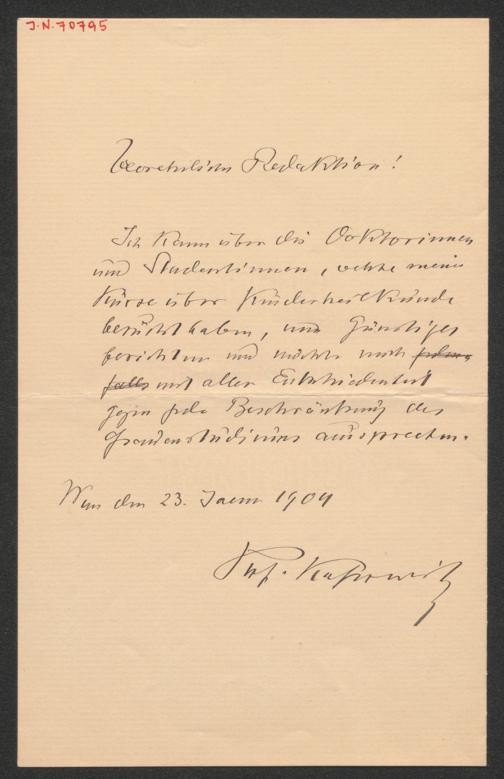 J.N. 70795
Verehrliche Redaktion!
Ich kann über die Doktorinnen
und Studentinnen, welche meine
Kurse über Kinderheilkunde
besucht haben, nur Günstiges
berichten und möchte mich jeden-
falls mit aller Entschiedenheit
gegen jede Beschränkung des
Frauenstudiums aussprechen.
Wien den 23. Jaenn 1904
Prof. Kassowitz